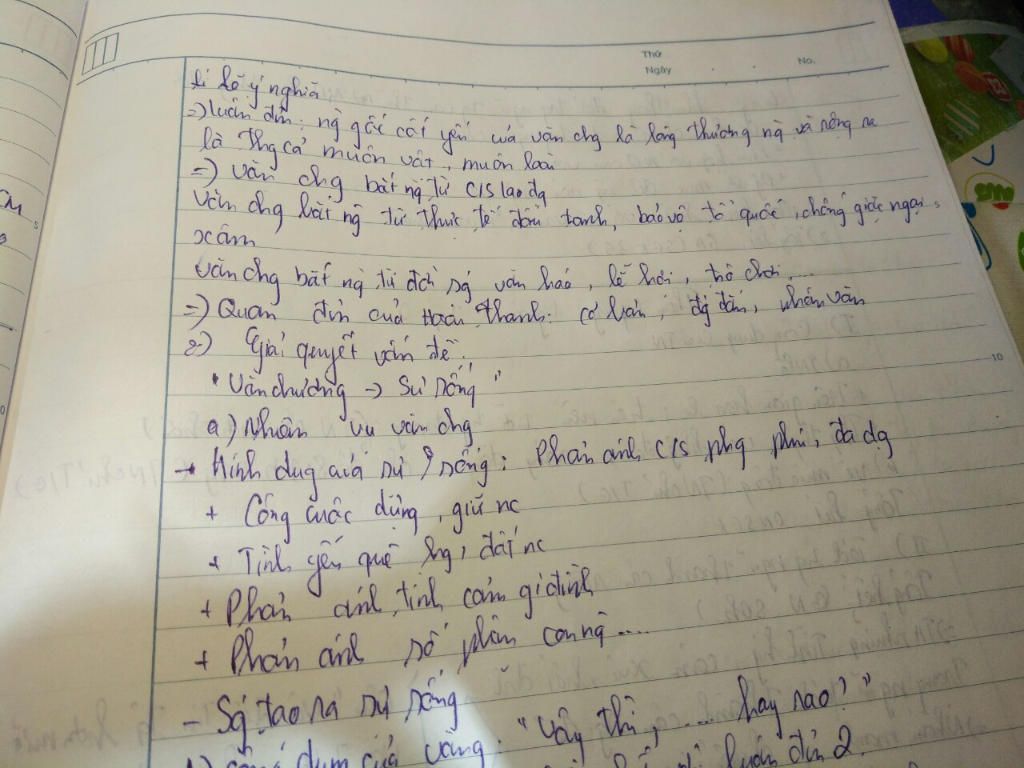 Thứ
Ngày . . No.
ý nghĩa
=) luận đ: ng gốc cốt yếu của văn chg là lòng thương ng và rộng ra
là thg cả muôn vật, muôn loài
=) văn chg bắt ng từ C/S lao đg
Văn chg bắt ng từ thực tế đấu tranh, bảo vệ tổ quốc, chống giặc ngoại
xâm
văn chg bắt ng từ đời sg văn hoá, lễ hội, trò chơi....
=) Quan của Hoài Thanh: cơ bản, đg đắn, nhân văn
2) Giải quyết vấn đề.
"Văn chương -> Sự sống"
a) Nhiệm vụ văn chg
+ Hình dug của sự sống: Phản ánh C/S phg phú, đa dg
+ Công cuộc dựng, giữ nc
+ Tình yêu quê hg, đất nc
+ Phản ánh tình cảm gia đình
+ Phản ánh số phận con ng....
- Sg tạo ra sự sống
công dụng của văn chg: "Vậy thì, .... hay sao?"
luận 2
10